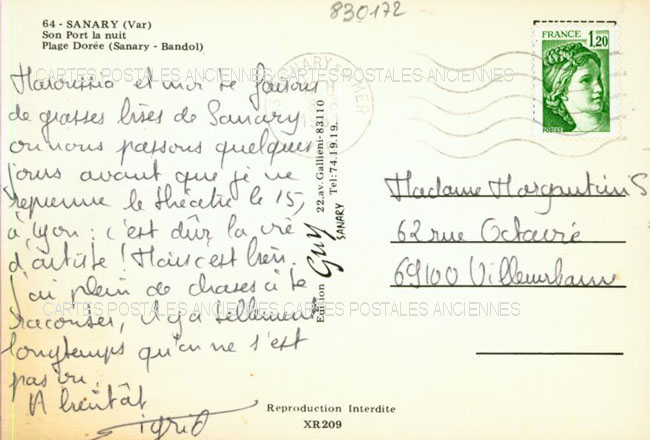 830172
64 - SANARY (Var)
Son Port la nuit
Plage Dorée (Sanary - Bandol)
FRANCE
1,20
POSTES
SANARY S MER
CARTES POSTALES ANCIENNES CARTES POSTALES ANCIENNES
et moi te faisons
de grosses bises de Sanary
où nous passons quelques
jours avant que je ne
reprenne le théâtre le 15,
à Lyon : c'est dûr la vie
d'artiste ! Mais c'est bien.
J'ai plein de choses à te
raconter, il y a tellement
longtemps qu'on ne s'est
pas vu.
A bientôt
Edition Guy 22.av.Gallieni-83110
SANARY Tel:74.19.19
Madame
62 rue Octavie
69100 Villeurbanne
CARTES POSTALES ANCIENNES CARTES POSTALES ANCIENNES
Reproduction Interdite
XR209